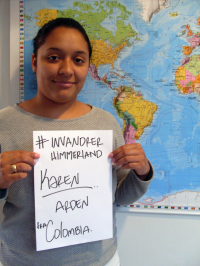 # INVANDRER
HIMMERLAND
KAREN
ARDEN
FRA COLOMBIA.